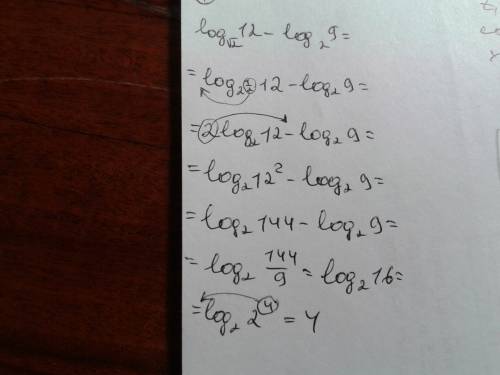 log_√2 12 - log_2 9 =
= log_2^(1/2) 12 - log_2 9 =
= 2 log_2 12 - log_2 9 =
= log_2 12² - log_2 9 =
= log_2 144 - log_2 9 =
= log_2 144/9 = log_2 16 =
= log_2 2^4 = 4